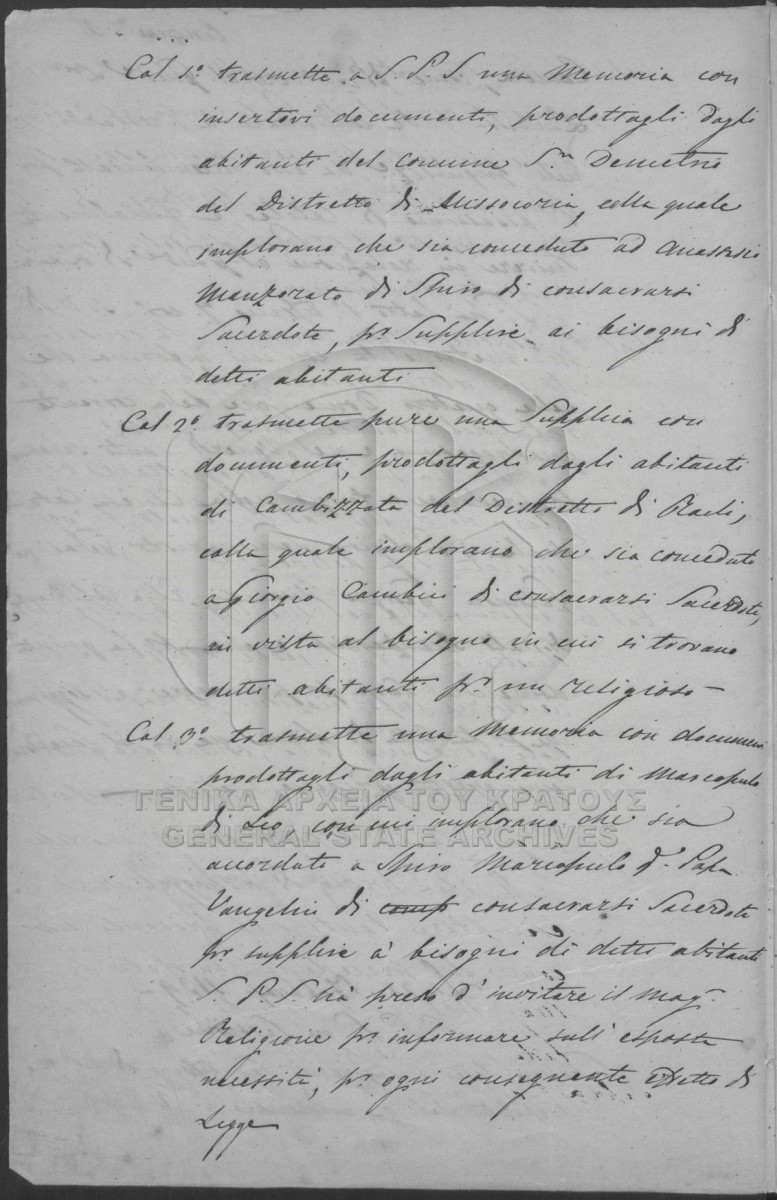 Col 1º trasmette a S. P. S. una Memoria con
insertovi documenti, prodottagli dagli
abitanti del comune Sn Demetrio
del Distretto di Missocoria, colla quale
implorano che sia conceduto ad Anastasio
Manzorato di Spiro di consacrarsi
Sacerdote, pr. Supplire ai bisogni di
detti abitanti
Col 2º trasmette pure una Supplica con
documenti, prodottagli dagli abitanti
di Cambizzata del Distretto di Racli,
colla quale implorano che sia conceduto
a Giorgio Cambici di consacrarsi Sacerdote,
in vista al bisogno in cui si trovano
detti abitanti pr. un religioso –
Col 3º trasmette una Memoria con documenti
prodottagli dagli abitanti di Marcopulo
ΓΕΝΙΚΑ ΑΡΧΕΙΑ ΤΟΥ ΚΡΑΤΟΥΣ
di Leo, con cui implorano che sia
GENERAL STATE ARCHIVES
accordato a Spiro Marcopulo d. Papa
Vangelin di comp consacrarsi Sacerdote
pr. supplire a' bisogni di detti abitanti
S. P. S. há preso d'invitare il mag.
Religione pr. informare sull'esposta
necessità, pr. ogni conseguente effetto di
Legge